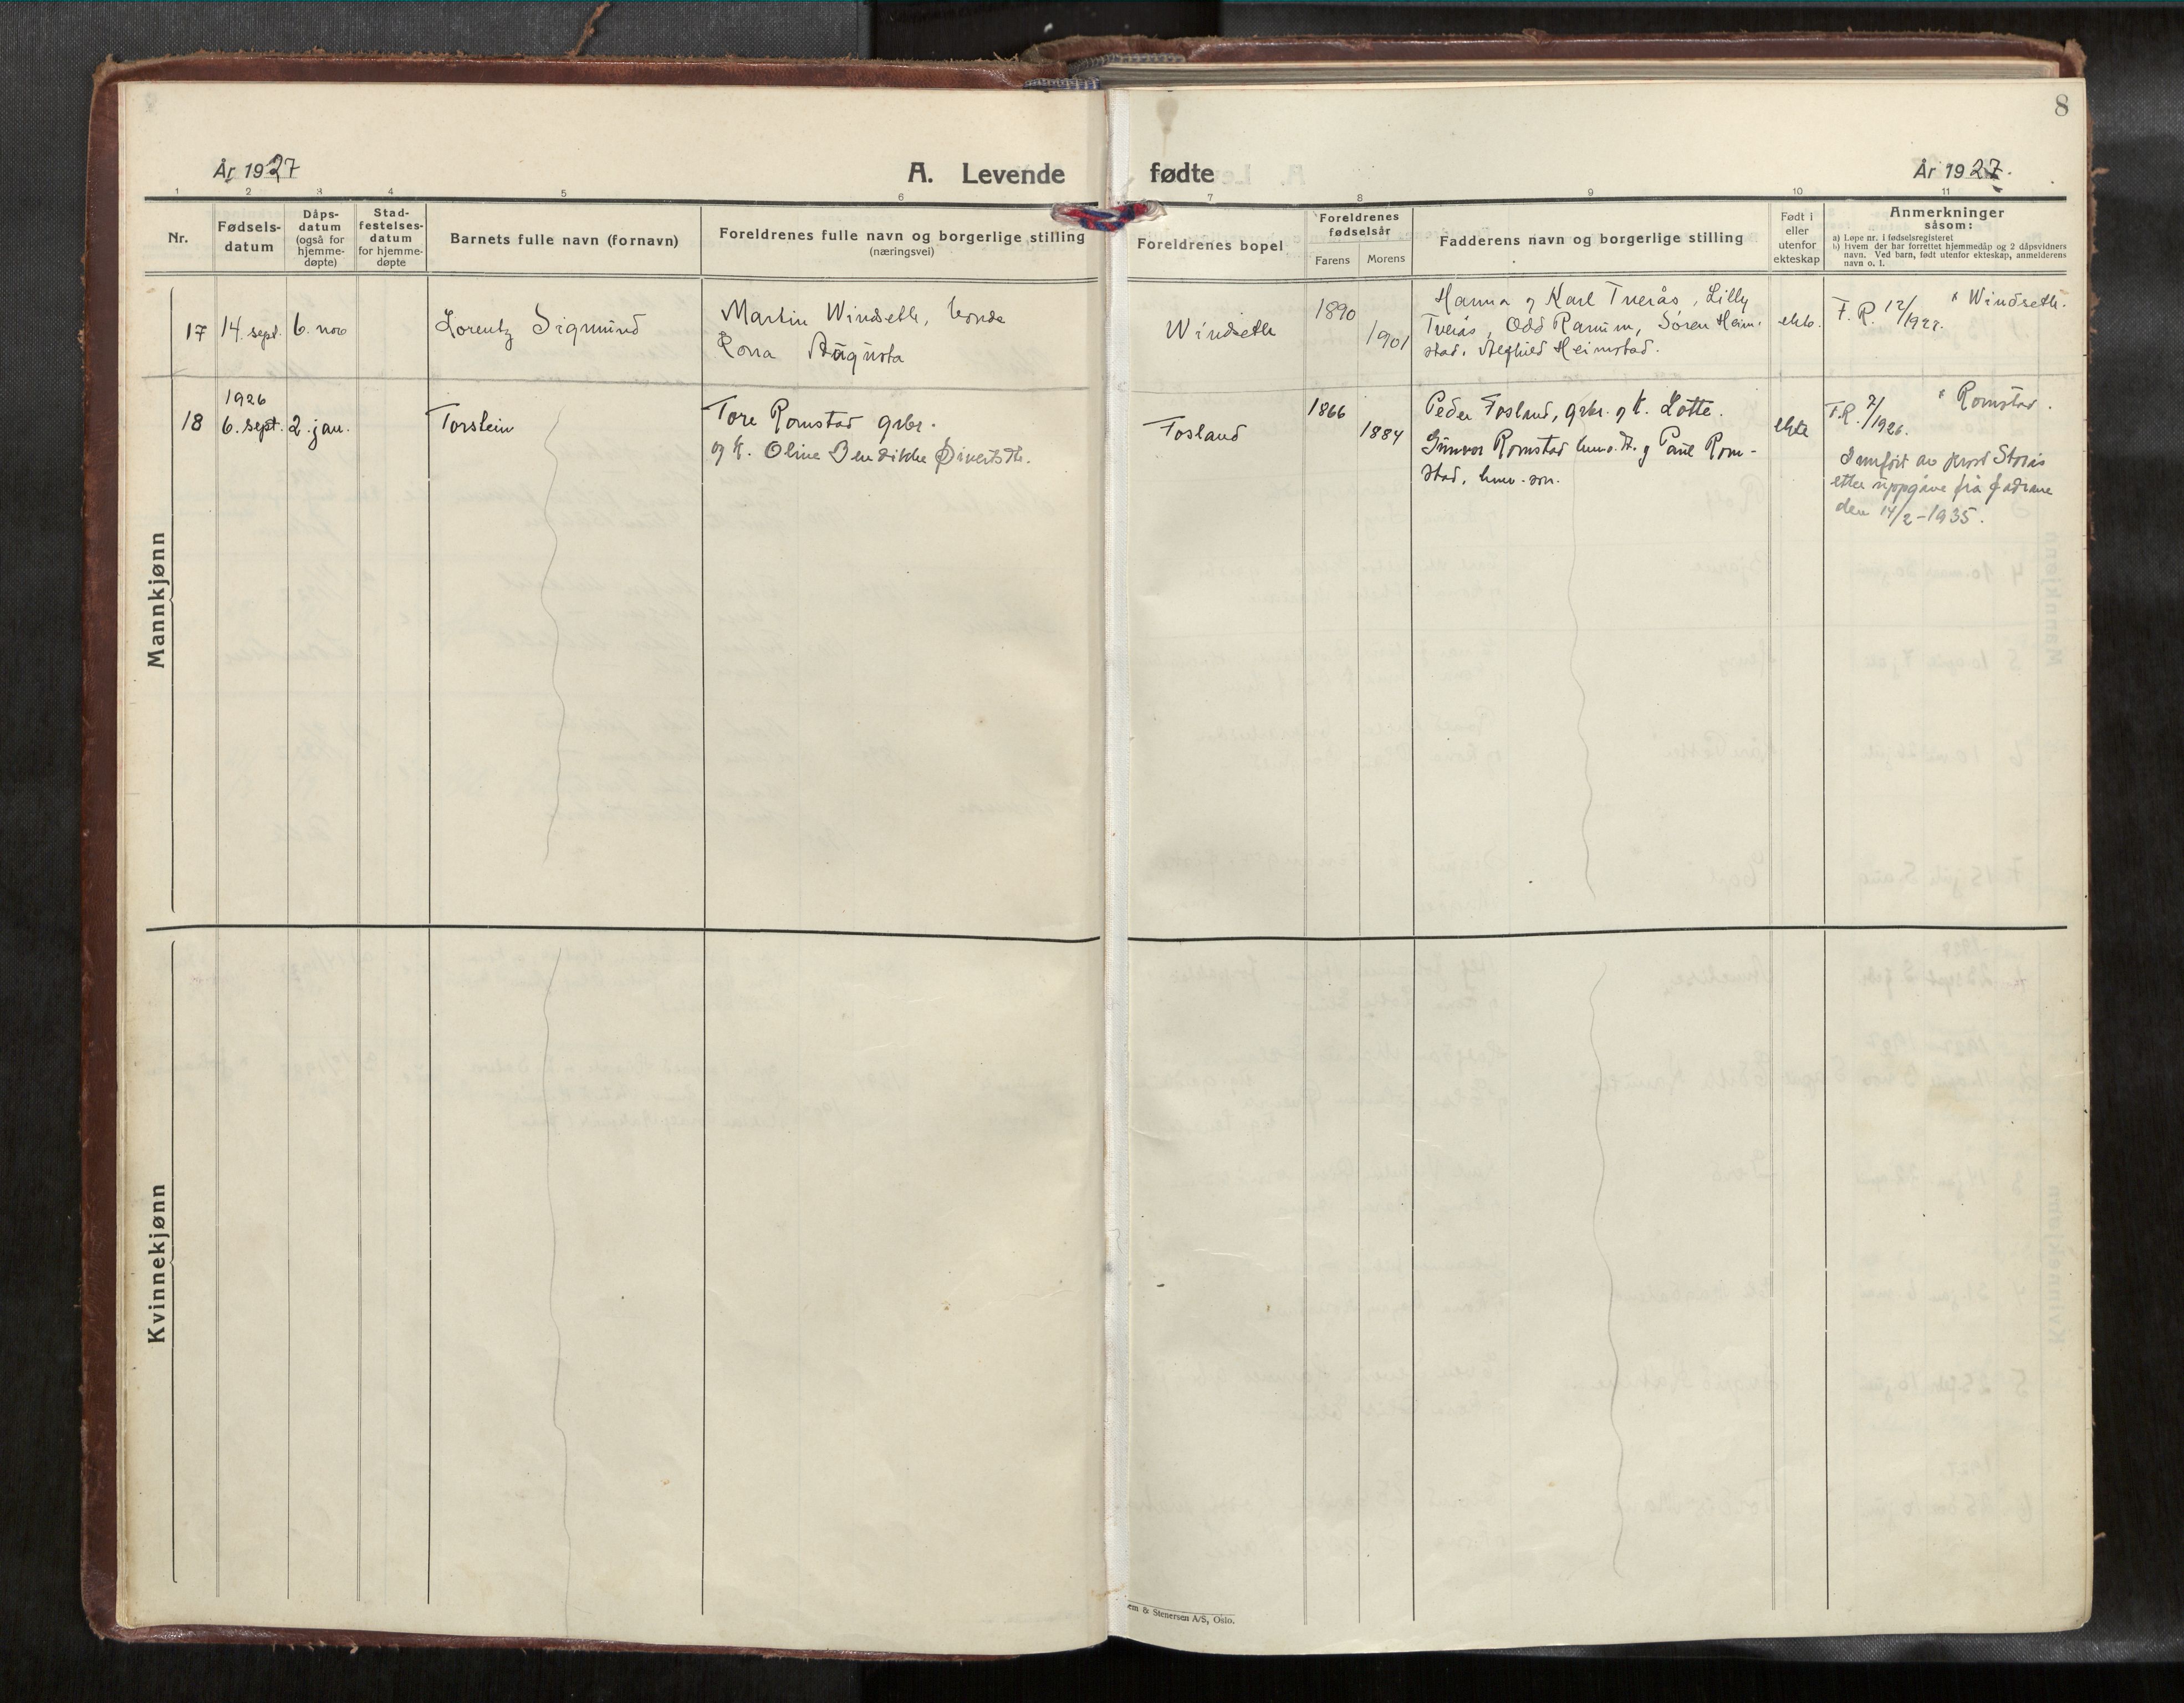 8
År 1927
A. Levende
fødte
År 1927.
1 2 3 4 5 6 7 8 9 10 11
Nr.
Fødsels-
datum
Dåps-
datum
(også for
hjemme-
døpte)
Stad-
festelses-
datum
for hjemme-
døpte
Barnets fulle navn (fornavn)
Foreldrenes fulle navn og borgerlige stilling
(næringsvei)
Foreldrenes bopel
Foreldrenes
fødselsår
Farens
Morens
Fadderens navn og borgerlige stilling
Født i
eller
utenfor
ekteskap
Anmerkninger
såsom:
a) Løpe nr. i fødselsregisteret
b) Hvem der har forrettet hjemmedåp og 2 dåpsvidners
navn. Ved barn, født utenfor ekteskap, anmelderens
navn o. l.
Mannkjønn
17
14. sept.
6. nov
Lorentz Sigmund
Martin Windseth, bonde
Kona Augusta
Windseth
1890
1901
Hanna og Karl Tverås, Lilly
Tverås, Odd Ranum, Søren Heim-
stad, Heimstad.
ekte.
F. R. 12/1927.
Windseth.
18
1926
6. sept.
2. jan.
Torstein
Tore Romstad grbr.
og k. Oline Benedikte Sivertsdt.
Fosland
1866
1884
Peder Fosland, grbr. og k. Lotte.
Gunvor Romstad hmv.dt. og Paul Rom-
stad, hmv. søn.
ekte
F.R. 7/1926.
Romstad.
Innført av prost Storås
etter uppgåve frå fadrane
den 14/2-1935.
Kvinnekjønn
em & Stenersen A/S, Oslo.